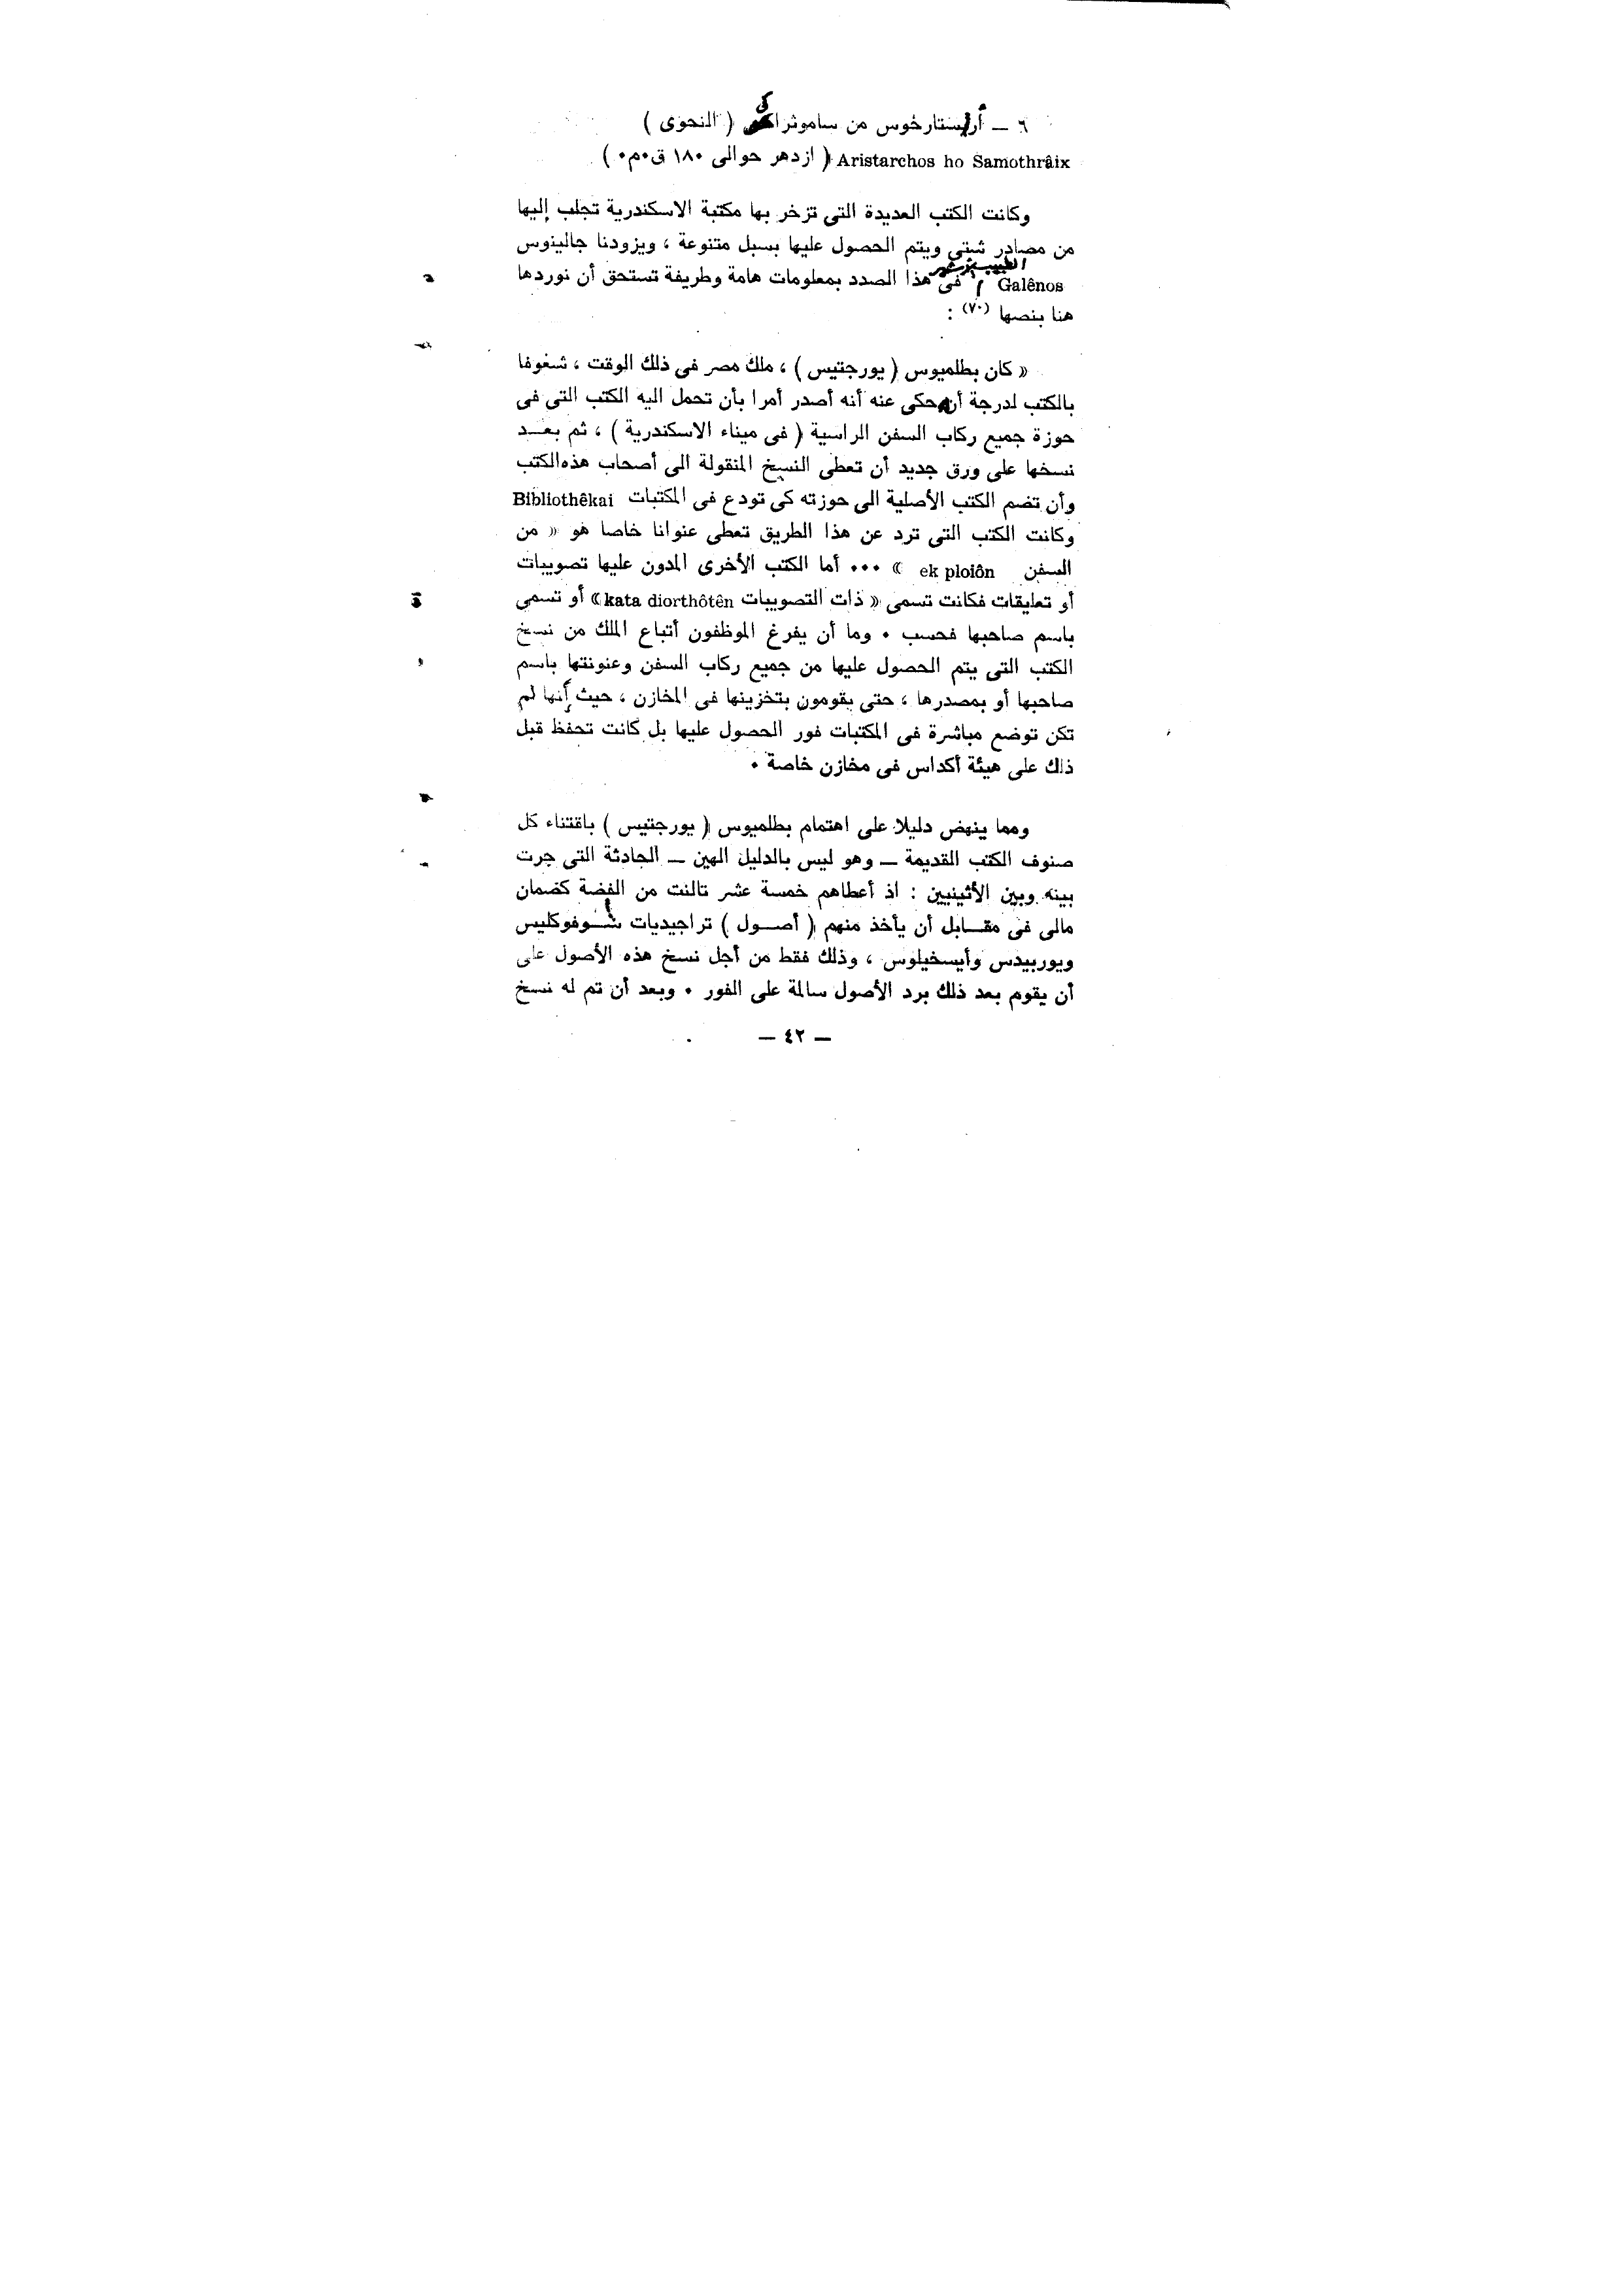 ٦ ــ أرستارخوس من ساموثراكى ( النحوى )
Aristarchos ho Samothrâix ( ازدهر حوالى ١٨٠ ق٠م٠ )
وكانت الكتب العديدة التى تزخر بها مكتبة الاسكندرية تجلب إليها
من مصادر شتى ويتم الحصول عليها بسبل متنوعة ، ويزودنا جالينوس
الطبيب
Galênos فى هذا الصدد بمعلومات هامة وطريفة تستحق أن نوردها
هنا بنصها (٧٠) :
« كان بطلميوس ( يورجتيس ) ، ملك مصر فى ذلك الوقت ، شغوفا
بالكتب لدرجة حكى عنه أنه أصدر أمرا بأن تحمل اليه الكتب التى فى
حوزة جميع ركاب السفن الراسية ( فى ميناء الاسكندرية ) ، ثم بعـــد
نسخها على ورق جديد أن تعطى النسخ المنقولة الى أصحاب هذه الكتب
وأن تضم الكتب الأصلية الى حوزته كى تودع فى المكتبات Bibliothêkai
وكانت الكتب التى ترد عن هذا الطريق تعطى عنوانا خاصا هو « من
السفن ek ploiôn » ٠٠٠ أما الكتب الأخرى المدون عليها تصويبات
أو تعليقات فكانت تسمى « ذات التصويبات kata diorthôtên » أو تسمى
باسم صاحبها فحسب ٠ وما أن يفرغ الموظفون أتباع الملك من نسخ
الكتب التى يتم الحصول عليها من جميع ركاب السفن وعنونتها باسم
صاحبها أو بمصدرها ، حتى يقومون بتخزينها فى المخازن ، حيث إنها لم
تكن توضع مباشرة فى المكتبات فور الحصول عليها بل كانت تحفظ قبل
ذلك على هيئة أكداس فى مخازن خاصة ٠
ومما ينهض دليلا على اهتمام بطلميوس ( يورجتيس ) باقتناء كل
صنوف الكتب القديمة ــ وهو ليس بالدليل الهين ــ الحادثة التى جرت
بينه وبين الأثينيين : اذ أعطاهم خمسة عشر تالنت من الفضة كضمان
مالى فى مقـــابل أن يأخذ منهم ( أصـــول ) تراجيديات ســـوفوكليس
ويوربيدس وأيسخيلوس ، وذلك فقط من أجل نسخ هذه الأصول على
أن يقوم بعد ذلك برد الأصول سالمة على الفور ٠ وبعد أن تم له نسخ
— ٤٢ —